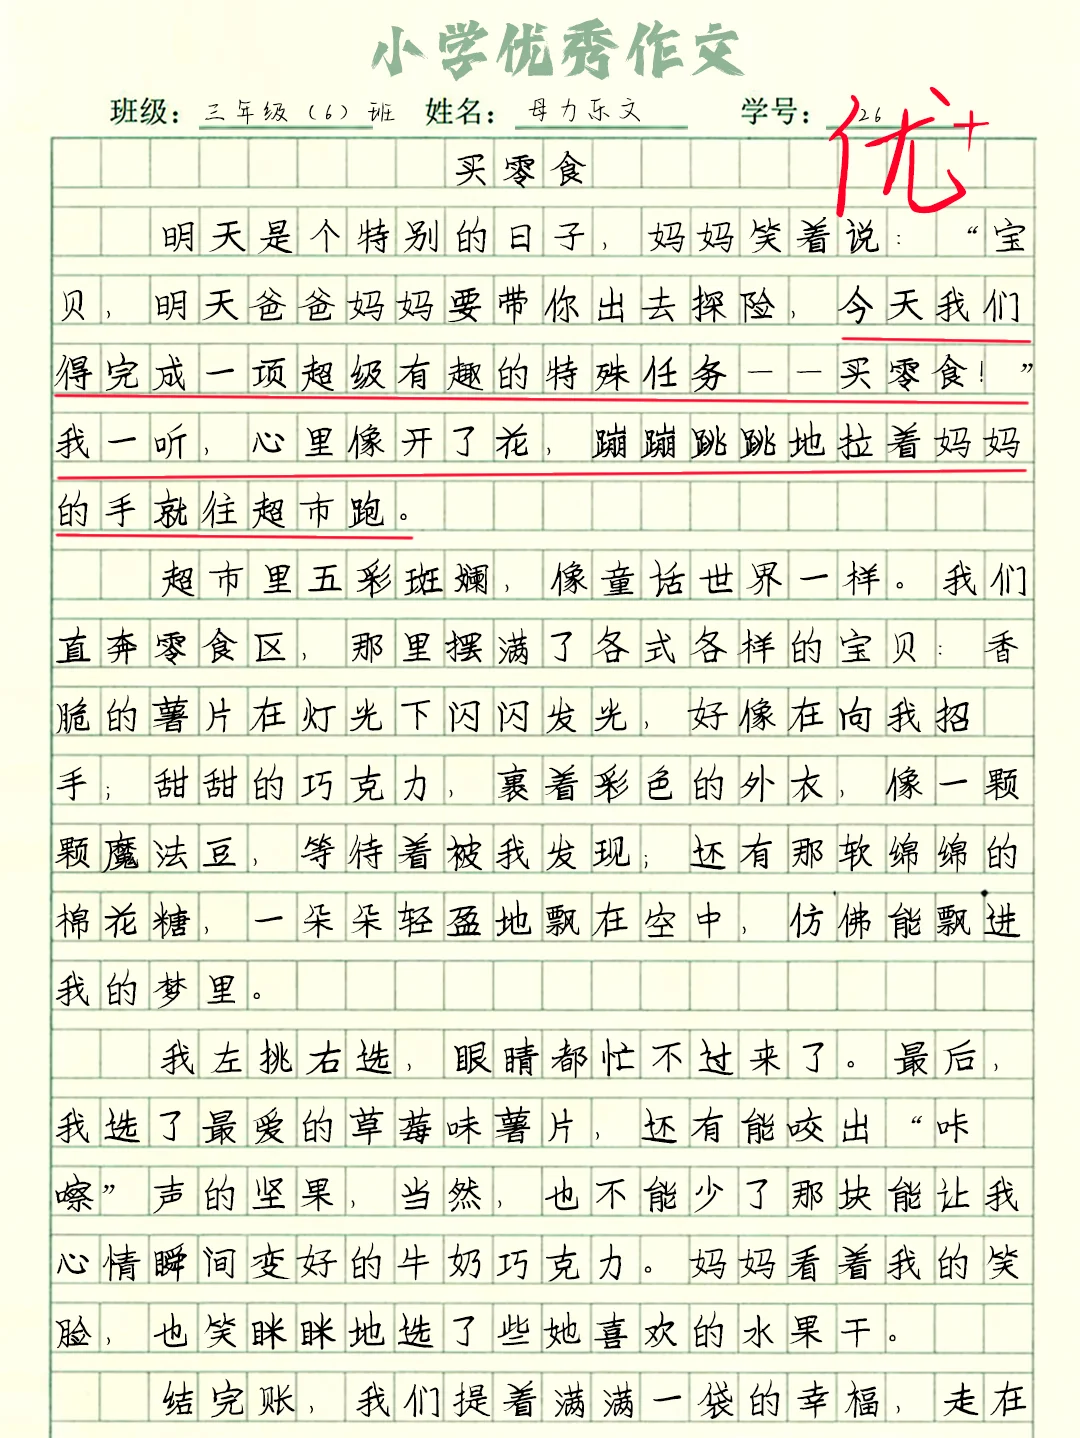 小学优秀作文
班级：三年级（6）班 姓名：母力乐文 学号：26
优+
买零食
明天是个特别的日子，妈妈笑着说：“宝
贝，明天爸爸妈妈要带你出去探险，今天我们
得完成一项超级有趣的特殊任务——买零食！”
我一听，心里像开了花，蹦蹦跳跳地拉着妈妈
的手就往超市跑。
超市里五彩斑斓，像童话世界一样。我们
直奔零食区，那里摆满了各式各样的宝贝：香
脆的薯片在灯光下闪闪发光，好像在向我招
手；甜甜的巧克力，裹着彩色的外衣，像一颗
颗魔法豆，等待着被我发现；还有那软绵绵的
棉花糖，一朵朵轻盈地飘在空中，仿佛能飘进
我的梦里。
我左挑右选，眼睛都忙不过来了。最后，
我选了最爱的草莓味薯片，还有能咬出“咔
嚓”声的坚果，当然，也不能少了那块能让我
心情瞬间变好的牛奶巧克力。妈妈看着我的笑
脸，也笑眯眯地选了些她喜欢的水果干。
结完账，我们提着满满一袋的幸福，走在